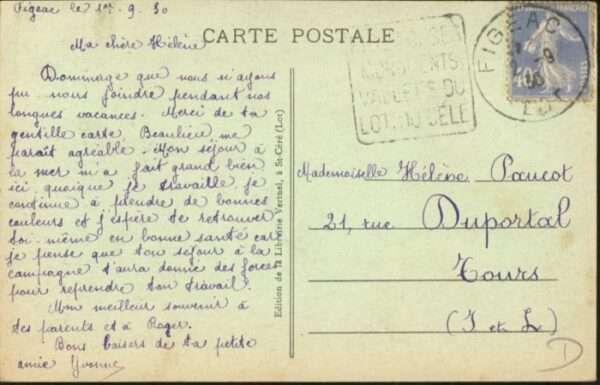 Figeac le 1er. 9. 30
Ma chère Hélène
Dommage que nous n'ayons
pu nous joindre pendant nos
longues vacances. Merci de ta
gentille carte. Beaulieu me
paraît agréable. Mon séjour à
la mer m'a fait grand bien
ici, quoique je travaille je
continue à prendre de bonnes
couleurs et j'espère te retrouver
toi-même en bonne santé car
je pense que ton séjour à la
campagne t'aura donné des forces
pour reprendre ton travail.
Mon meilleur souvenir à
tes parents et à Roger.
Bons baisers de ta petite
amie Yvonne
CARTE POSTALE
Edition de la Librairie Vertuel, à St-Céré (Lot)
MONUMENTS
VALLÉES DU
LOT. DU CÉLÉ
FIGEAC
LOT
40c
Mademoiselle Hélène Paucot
21, rue Duportal
Tours
(I et L)
D